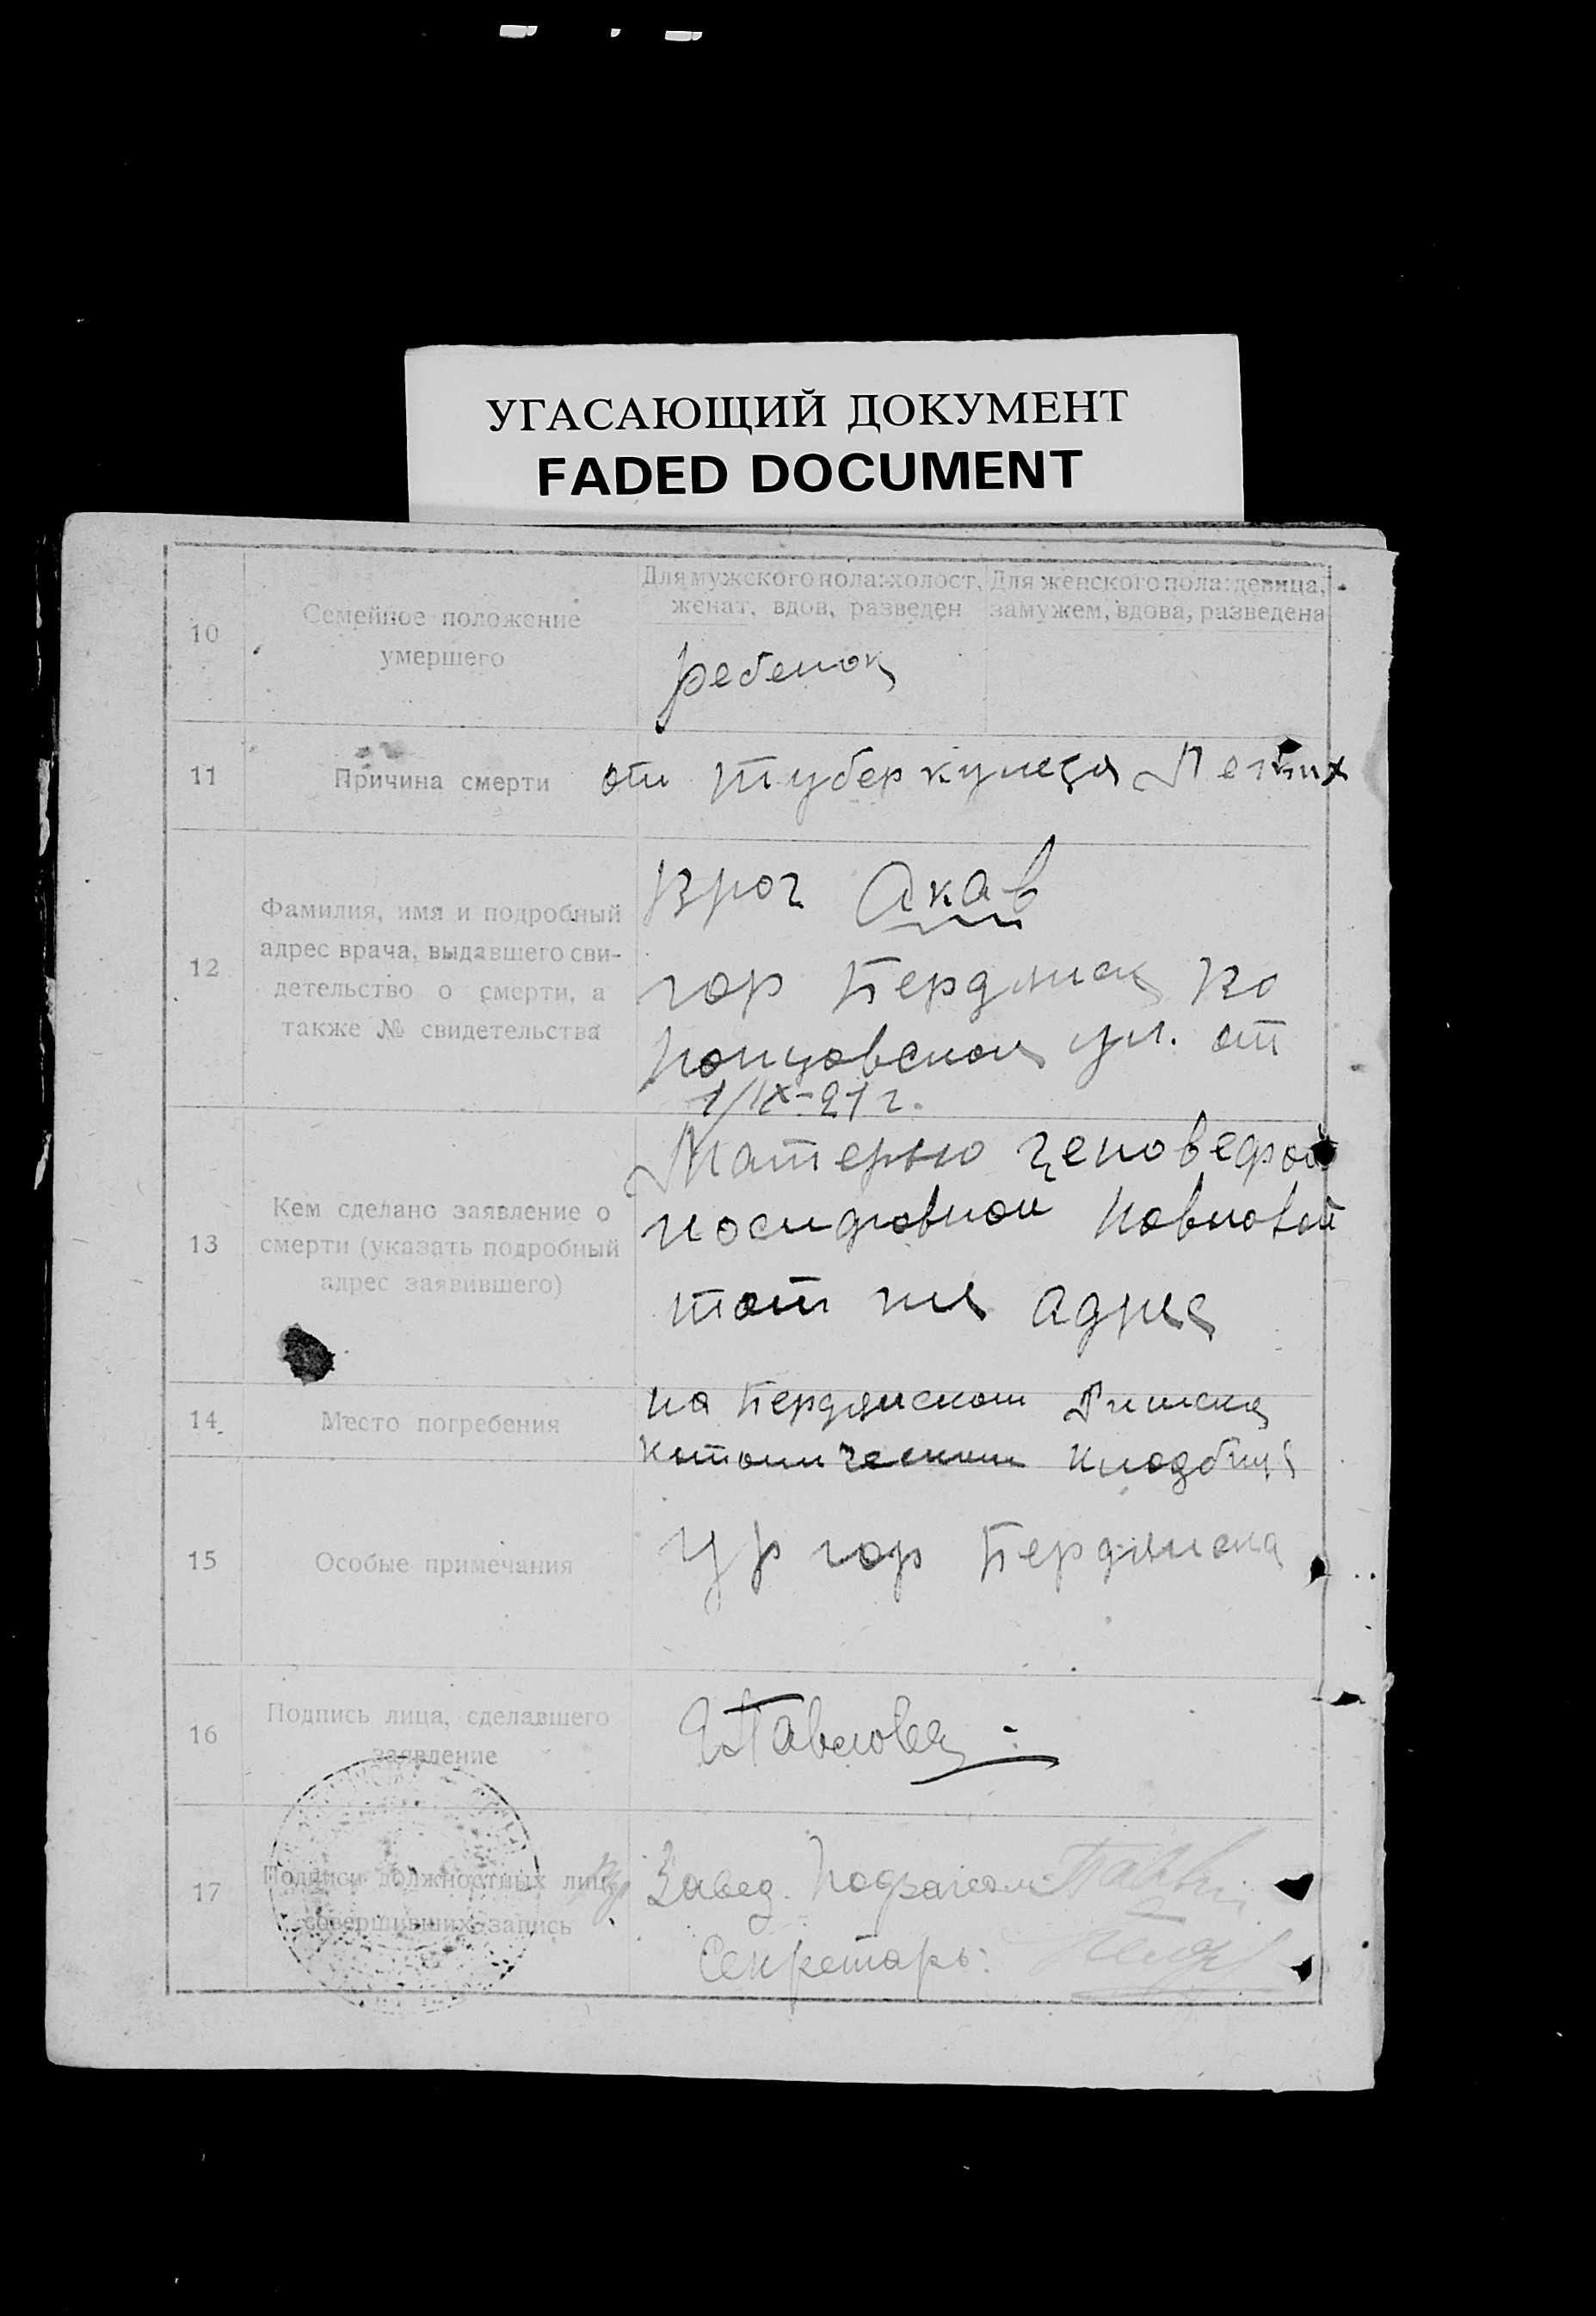 УГАСАЮЩИЙ ДОКУМЕНТ
FADED DOCUMENT
10
Семейное положение
умершего
Для мужского пола: холост,
женат, вдов, разведен
Для женского пола: девица,
замужем, вдова, разведена
ребенок
11
Причина смерти
от туберкулеза Легких
12
Фамилия, имя и подробный
адрес врача, выдавшего сви-
детельство о смерти, а
также № свидетельства
врач Акав
гор Бердянск
ул. от
1/IX-21 г.
13
Кем сделано заявление о
смерти (указать подробный
адрес заявившего)
Матерью
Павловой
тот же адрес
14
Место погребения
на Бердянском Римско
католическом кладбище
15
Особые примечания
гр гор Бердянска
16
Подпись лица, сделавшего
заявление
Павлова
17
Подписи должностных лиц,
совершивших запись
Завед. Подзагсом
Секретарь: